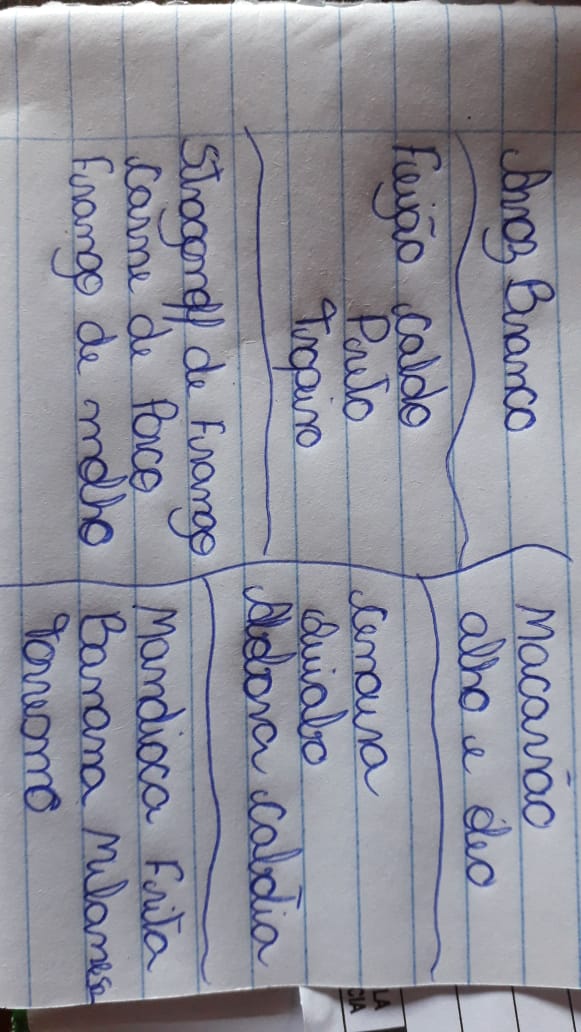 Arroz Branco
Feijão caldo
Preto
Tropeiro
Strogonoff de Frango
Carne de Porco
Frango de molho
Macarrão
alho e óleo
Cenoura
Quiabo
Abobora cabotia
Mandioca Frita
Banana Milanesa
Torresmo
LA
CIA